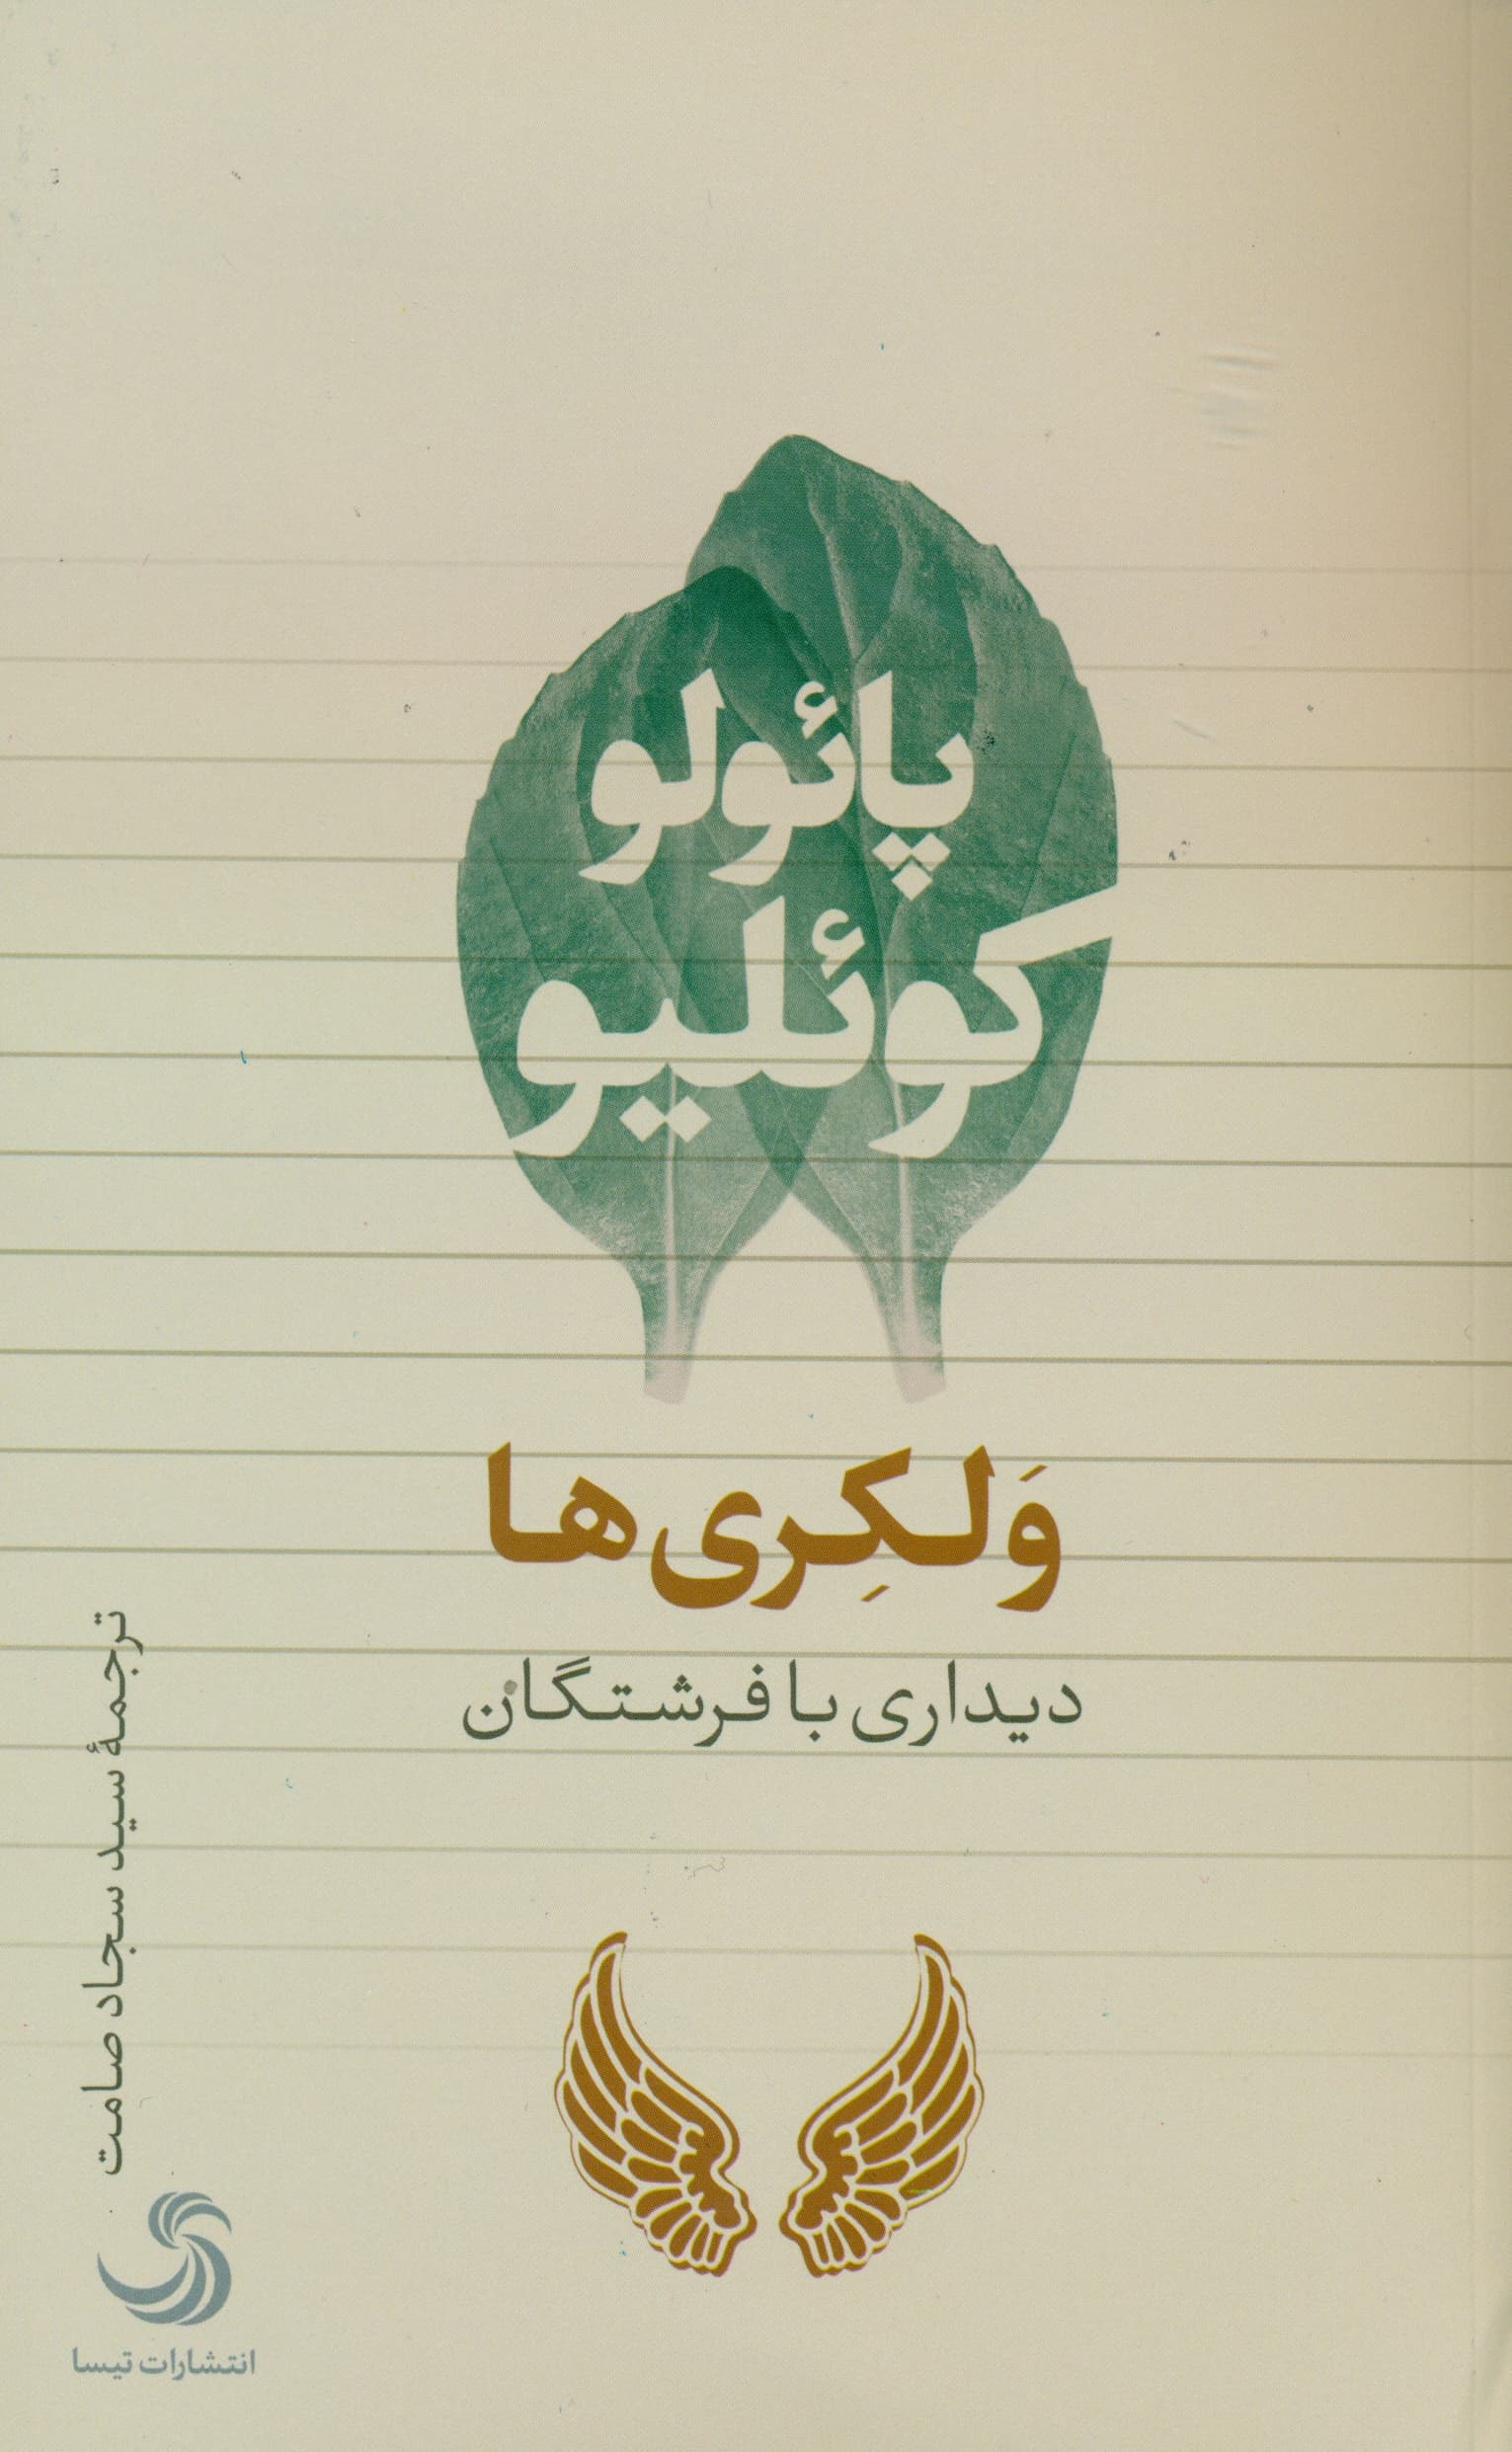 پائولو
کوئلیو
وَلکِری‌ها
دیداری با فرشتگان
ترجمهٔ سید سجاد صامت
انتشارات تیسا